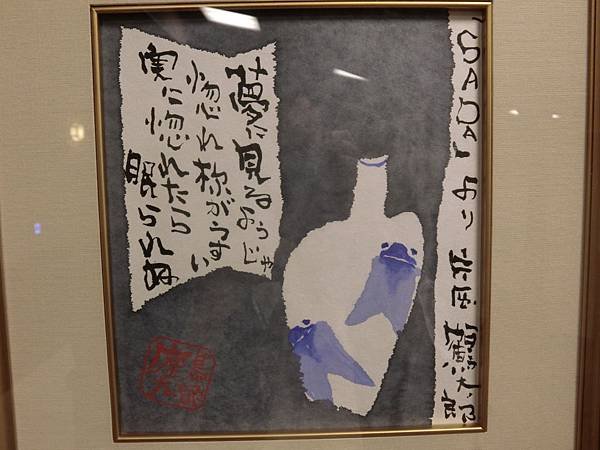 「SADA」より 片岡 鶴太郎
夢に見るようじゃ
惚れ様がうすい
実に惚れたら
眠られぬ